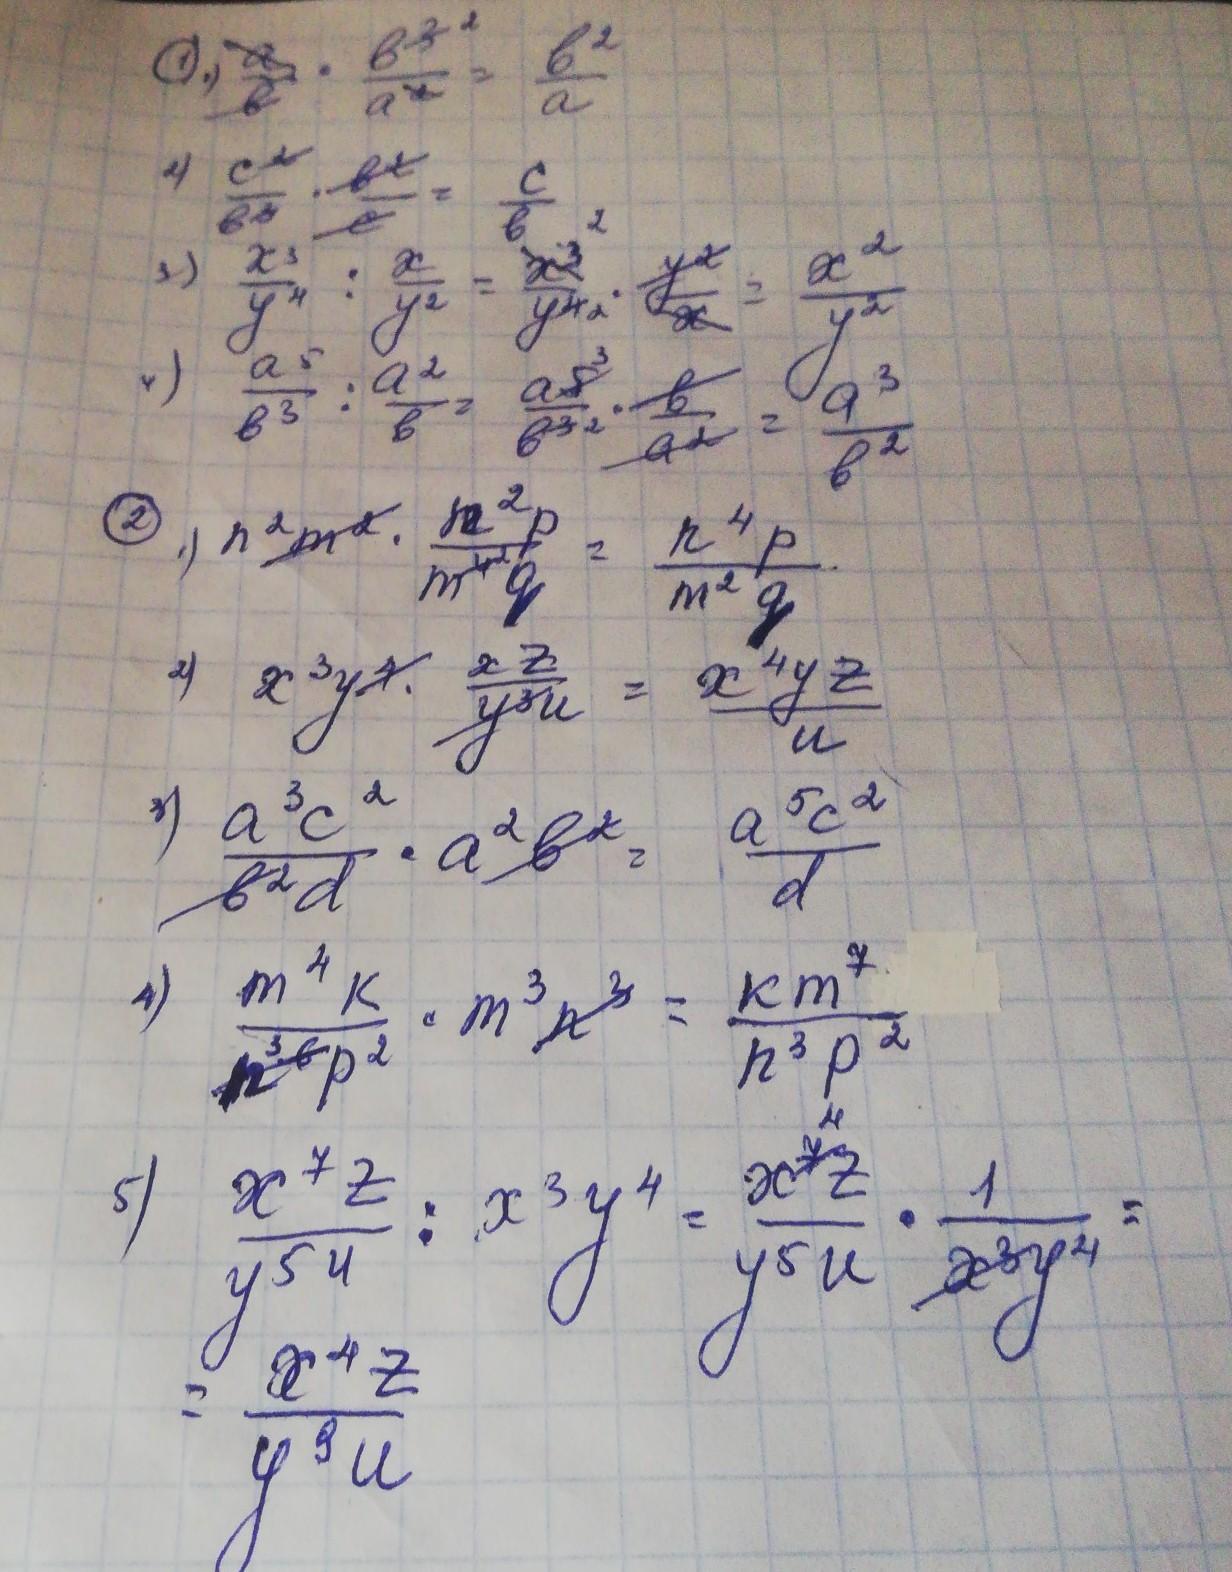 ① 1) a/в · в³/a² = в²/a
2) c²/в³ · в²/c = c/в
3) x³/y⁴ : x/y² = x³/y⁴ · y²/x = x²/y²
4) a⁵/в³ : a²/в = a⁵/в³ · в/a² = a³/в²
② 1) n²m² · n²p/m⁴q = n⁴p/m²q
2) x³y⁴ · xz/y³u = x⁴yz/u
3) a³c²/в²d · a²в² = a⁵c²/d
4) m⁴к/n⁶p² · m³n³ = кm⁷/n³p²
5) x⁷z/y⁵u : x³y⁴ = x⁷z/y⁵u · 1/x³y⁴ =
= x⁴z/y⁹u